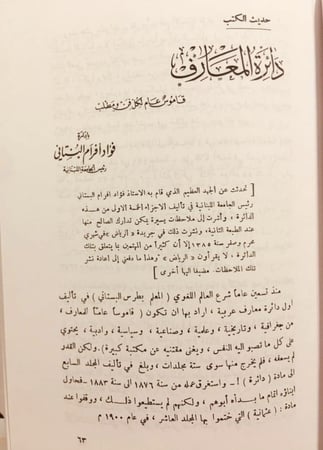 حديث الكتب
دائرة المعارف
قاموس عام لكل فن ومطلب
بإدارة
فؤاد أفرام البستاني
رئيس الجامعة اللبنانية
[ تحدثت عن الجهد العظيم الذي قام به الاستاذ فؤاد افرام البستاني
رئيس الجامعة اللبنانية في تأليف الاجزاء الخمسة الاول من هذه
الدائرة ، وأشرت إلى ملاحظات يسيرة يمكن تدارك الصالح منها
عند الطبعة الثانية ، ونشرت ذلك في جريدة « الرياض » في شهري
محرم وصفر سنة ١٣٨٥ إلا أن كثيرا من المهتمين بما يتعلق بتلك
الدائرة ، لا يقرأون « الرياض » وهذا ما دفعني إلى اعادة نشر
تلك الملاحظات . مضيفا اليها أخرى ]
منذ تسعين عاما شرع العالم اللغوي ( المعلم بطرس البستاني ) في تأليف
أول دائرة معارف عربية ، اراد بها ان تكون ( قاموسا عاما للمعارف ،
من جغرافية ، وتاريخية ، وعلمية ، وصناعية ، وسياسية ، وادبية ، يحتوي
على كل ما تصبو اليه النفس ، ويغني مقتنيه عن مكتبة كبيرة ) . ولكن القدر
لم يسعفه ، فلم يخرج منها سوى ستة مجلدات ، وبلغ في تأليف المجلد السابع
الى مادة ( دائرة ) ! - واستغرق عمله من سنة ١٨٧٦ الى سنة ١٨٨٣ - فحاول
ابناؤه اتمام ما بدأه أبوهم ، ولكنهم لم يستطيعوا ذلك ، ووقفوا عند
مادة : ( عثمانية ) التي ختموا بها المجلد العاشر ، في عام ١٩٠٠ م
٦٣